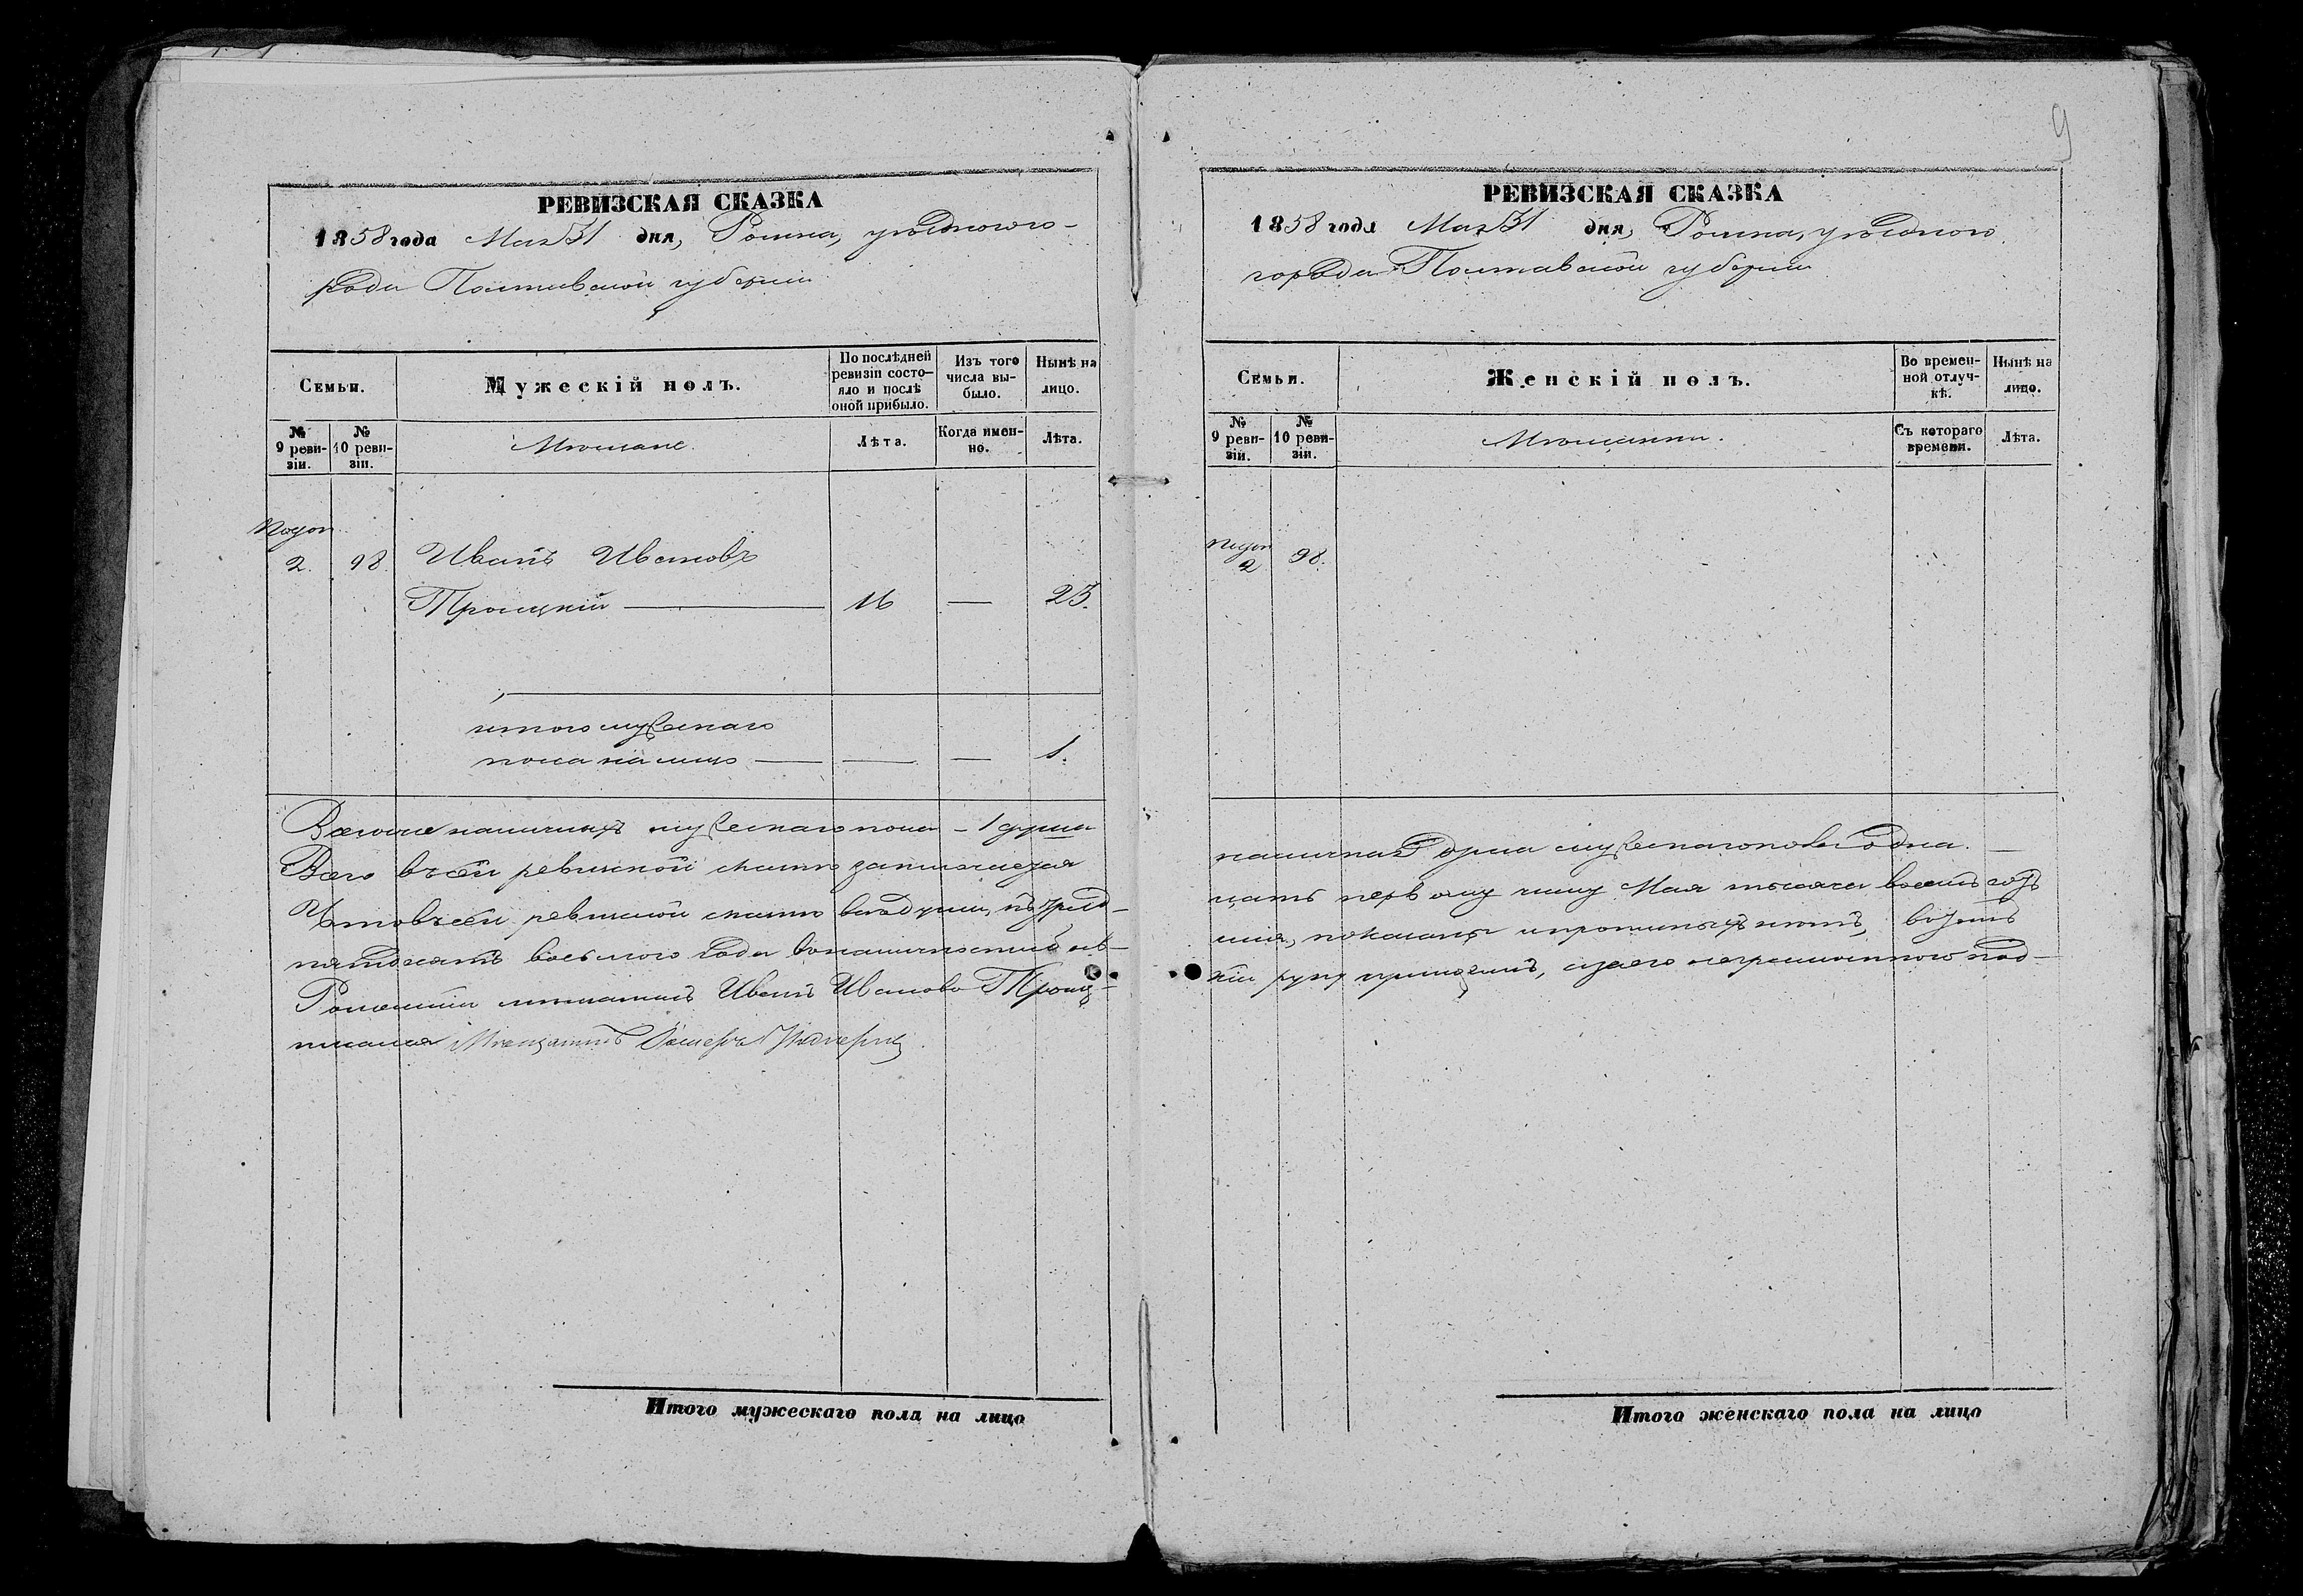 РЕВИЗСКАЯ СКАЗКА
1858 года Мая 31 дня, Ромна, уѣзднаго го-
рода Полтавской губерніи
Семьи.
Мужескій полъ.
По послѣдней ревизіи состояло и послѣ оной прибыло.
Изъ того числа выбыло.
Нынѣ на лицо.
№ 9 ревизіи.
№ 10 ревизіи.
Мѣщане.
Лѣта.
Когда именно.
Лѣта.
2. 98. Иванъ Ивановъ
Троицкій — 16 — 25.
итого мужескаго
пола на лицо — — — 1.
Всего наличныхъ мужескаго пола - 1 душа
Всего въ сей ревизской сказкѣ заключается
Что въ сей ревизской сказкѣ всѣ души, по тρид-
пятдесятъ восьмого года въ наличности
Роменскій мѣщанинъ Иванъ Ивановъ Троиц-
писался Мѣщанинъ
Итого мужескаго пола на лицо
9
РЕВИЗСКАЯ СКАЗКА
1858 года Мая 31 дня, Ромна, уѣзднаго
города Полтавской губерніи
Семьи.
Женскій полъ.
Во временной отлучкѣ.
Нынѣ на лицо.
№ 9 ревизіи.
№ 10 ревизіи.
Мѣщанки.
Съ котораго времени.
Лѣта.
2 98.
наличная душа мужескаго пола одна. —
цать первому числу Мая тысяча восемь сотъ
показаны и прописныхъ нѣтъ,
кій руку приложилъ, а за него неграмотнаго под-
Итого женскаго пола на лицо